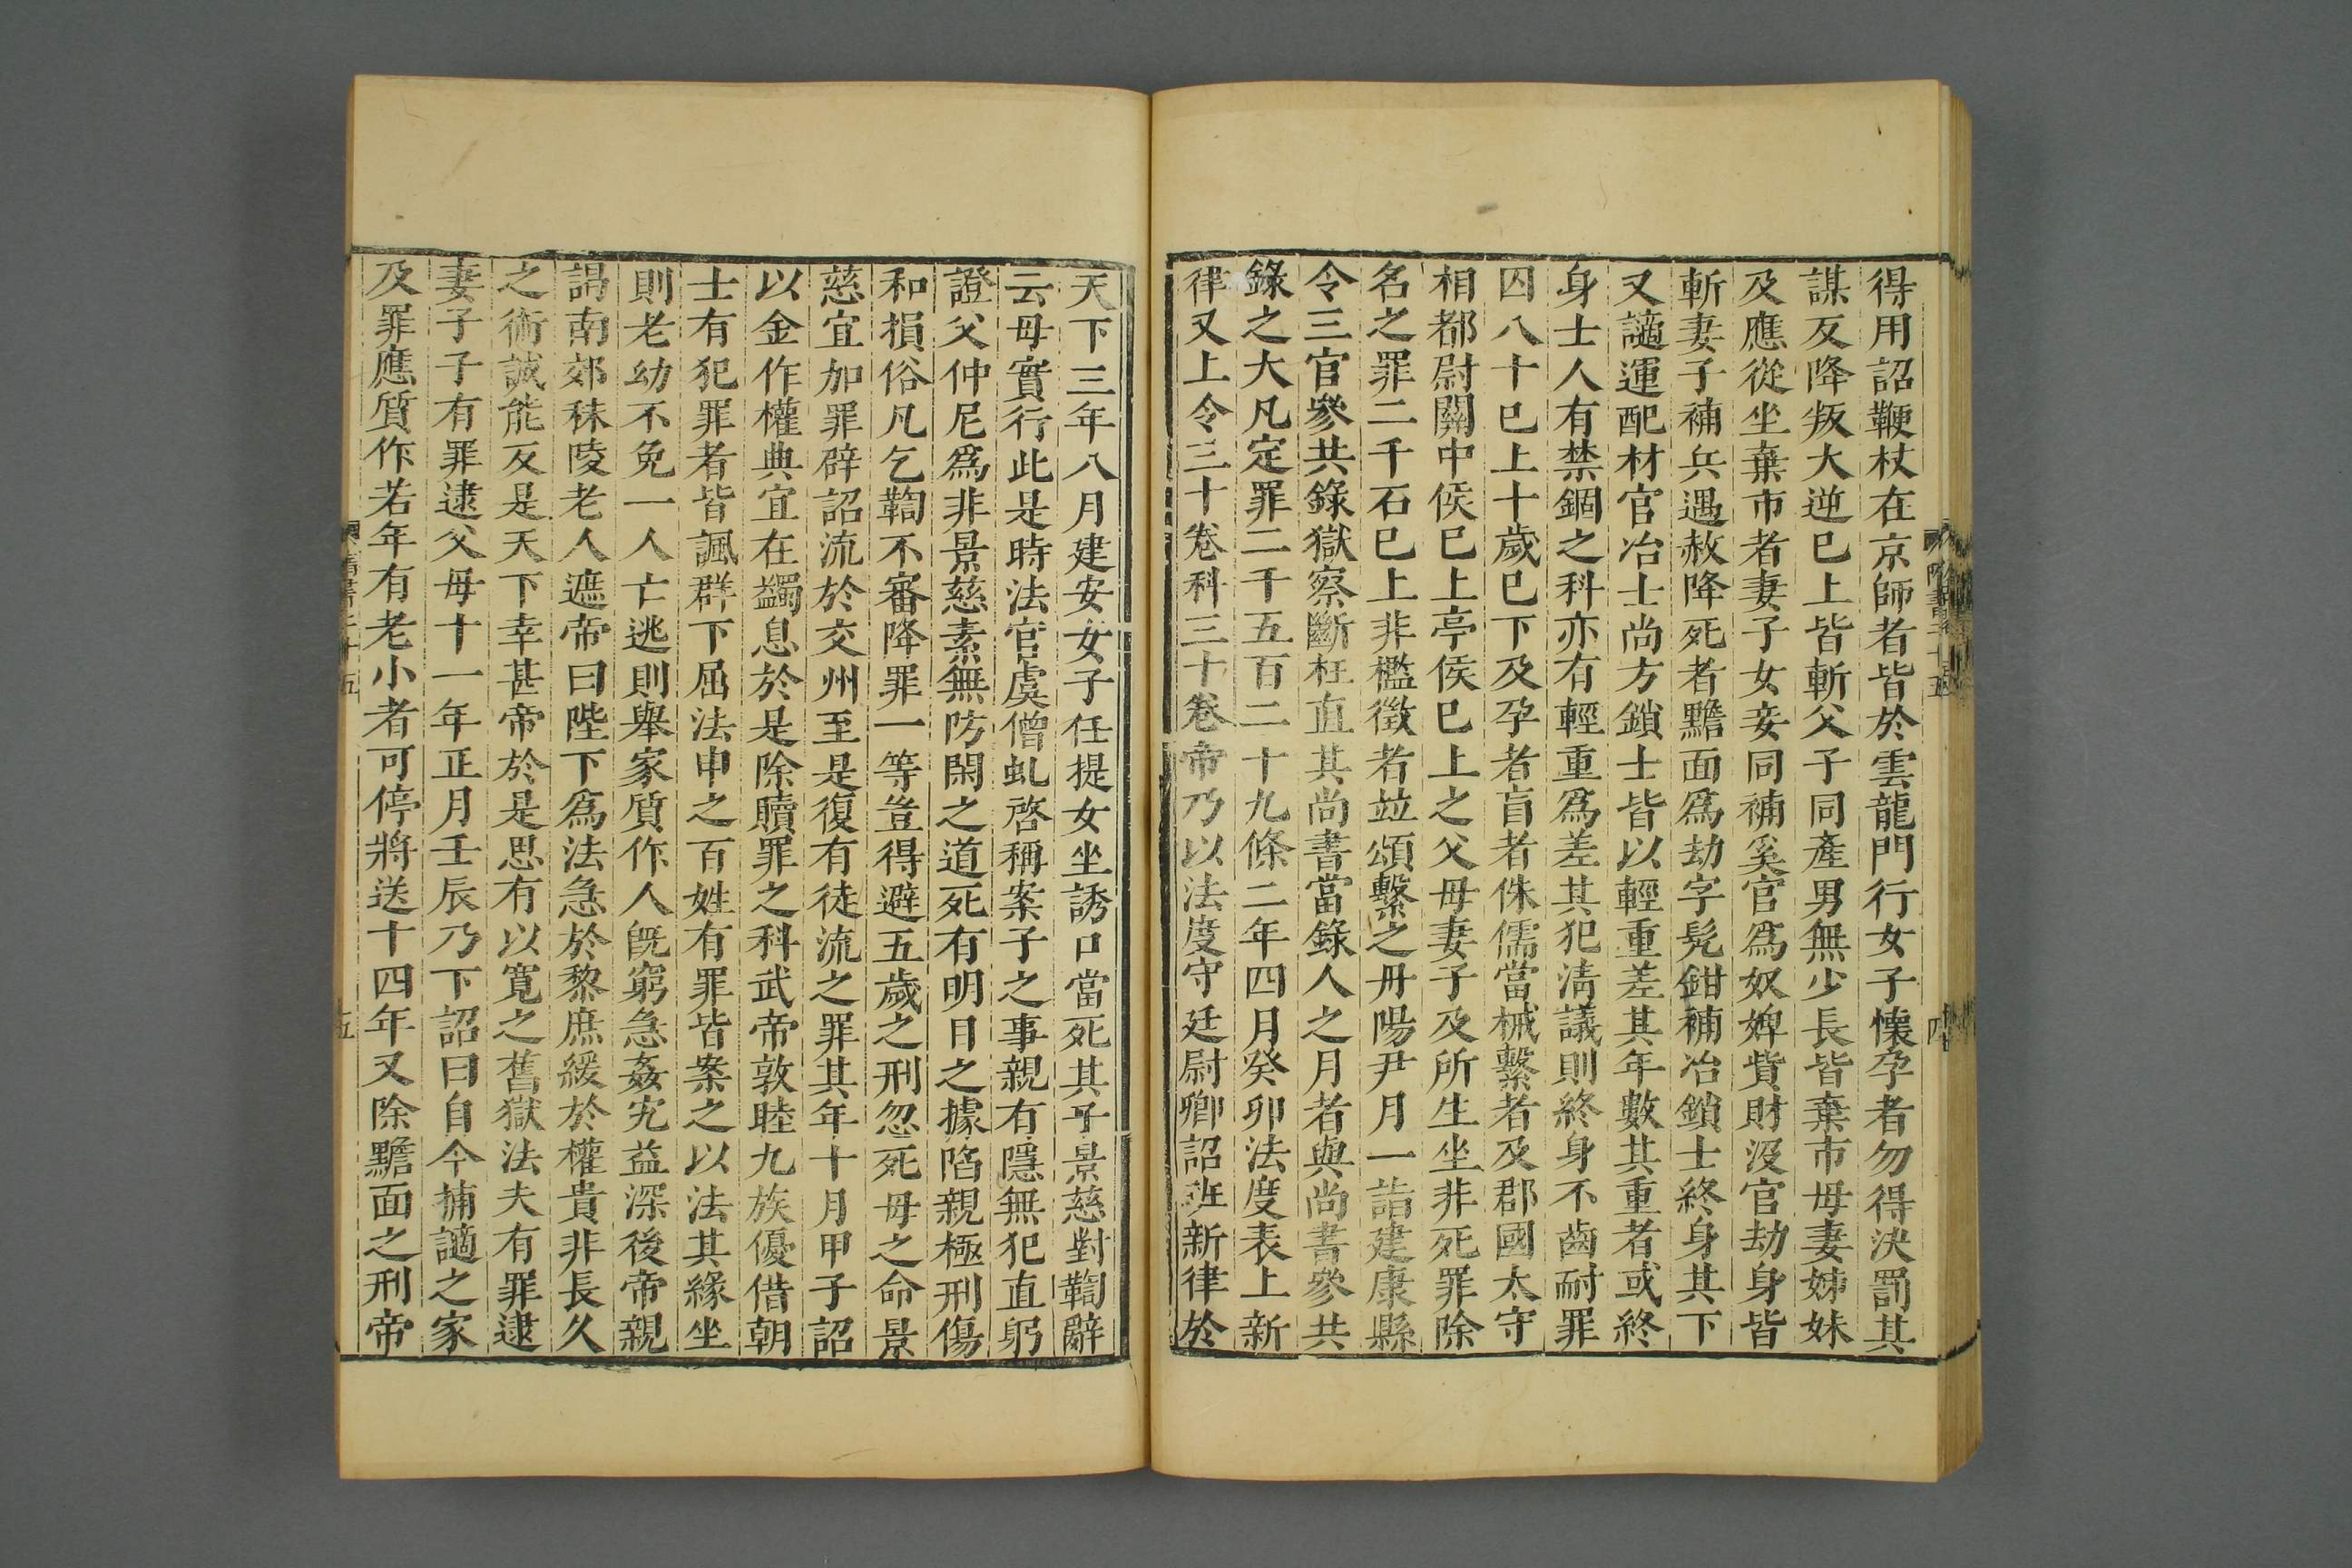 得用詔鞭杖在京師者皆於雲龍門行女子懷孕者勿得決罰其
謀反降叛大逆已上皆斬父子同產男無少長皆棄市母妻姊妹
及應從坐棄市者妻子女妾同補奚官爲奴婢貲財沒官劫身皆
斬妻子補兵遇赦降死者黵面爲劫字髡鉗補冶鎖士終身其下
又謫運配材官冶士尚方鎖士皆以輕重差其年數其重者或終
身士人有禁錮之科亦有輕重爲差其犯淸議則終身不齒耐罪
囚八十已上十歲已下及孕者盲者侏儒當械繫者及郡國太守
相都尉關中侯已上亭侯已上之父母妻子及所生坐非死罪除
名之罪二千石已上非檻徵者竝頌繫之丹陽尹月一詣建康縣
令三官參共錄獄察斷枉直其尚書當錄人之月者與尚書參共
錄之大凡定罪二千五百二十九條二年四月癸卯法度表上新
律又上令三十卷科三十卷帝乃以法度守廷尉卿詔班新律於
天下三年八月建安女子任提女坐誘口當死其子景慈對鞫辭
云母實行此是時法官虞僧虬啓稱案子之事親有隱無犯直躬
證父仲尼爲非景慈素無防閑之道死有明目之據陷親極刑傷
和損俗凡乞鞫不審降罪一等豈得避五歲之刑忽死母之命景
慈宜加罪辟詔流於交州至是復有徒流之罪其年十月甲子詔
以金作權典宜在蠲息於是除贖罪之科武帝敦睦九族優借朝
士有犯罪者皆諷群下屈法申之百姓有罪皆案之以法其緣坐
則老幼不免一人亡逃則舉家質作人旣窮急姦宄益深後帝親
謁南郊秣陵老人遮帝曰陛下爲法急於黎庶緩於權貴非長久
之術誠能反是天下幸甚帝於是思有以寬之舊獄法夫有罪逮
妻子子有罪逮父母十一年正月壬辰乃下詔曰自今捕謫之家
及罪應質作若年有老小者可停將送十四年又除黵面之刑帝